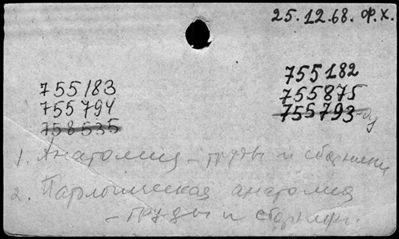 25.12.68. Ф.Х.
755183
755182
755794
755875
758535
755793
1. Анатомия - труды и сборники
2. Патологическая анатомия
- труды и сборники.